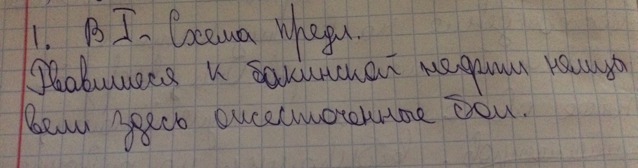 1. В I. Схема предл.
Рвавшиеся к бакинской нефти немцы
вели здесь ожесточенные бои.